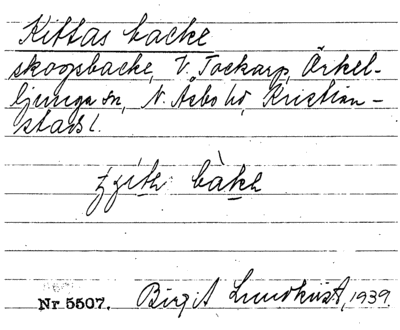 Kittas backe
skogsbacke, V. Tockarp, Örkel-
ljunga sn, N. Åsbo hd, Kristian-
stads l.
bàkh
Nr 5507. Birgit Lundkvist, 1939.